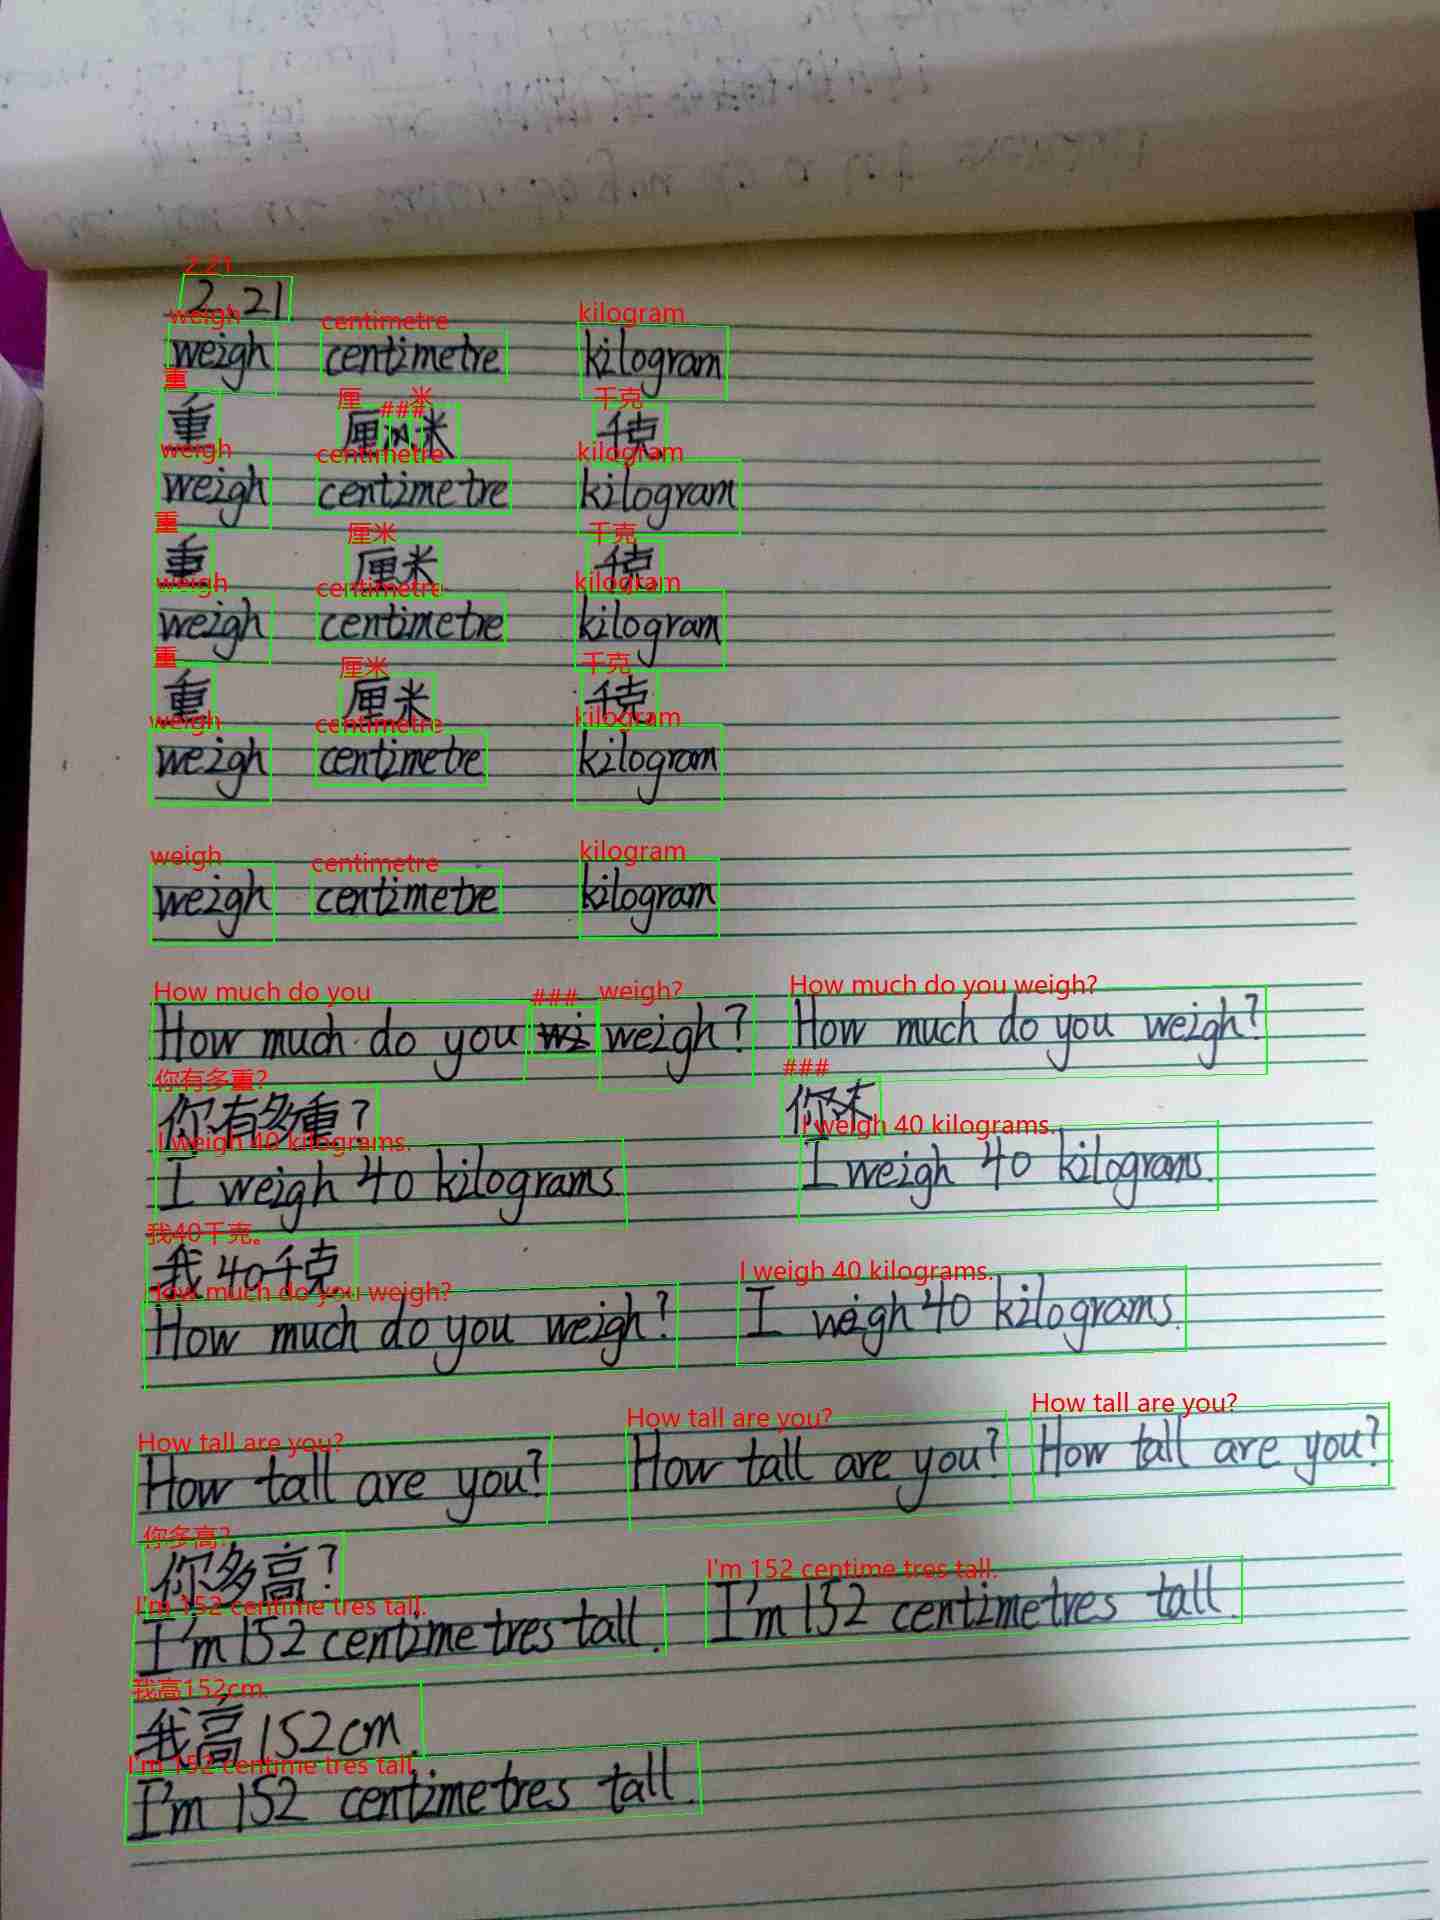 2.21
weigh centimetre kilogram
重 厘米 千克
weigh centimetre kilogram
重 厘米 千克
weigh centimetre kilogram
重 厘米 千克
weigh centimetre kilogram
weigh centimetre kilogram
How much do you weigh? How much do you weigh?
你有多重? 你
I weigh 40 kilograms. I weigh 40 kilograms.
我40千克
How much do you weigh? I weigh 40 kilograms.
How tall are you? How tall are you? How tall are you?
你多高?
I'm 152 centimetres tall. I'm 152 centimetres tall.
我高152cm.
I'm 152 centimetres tall.